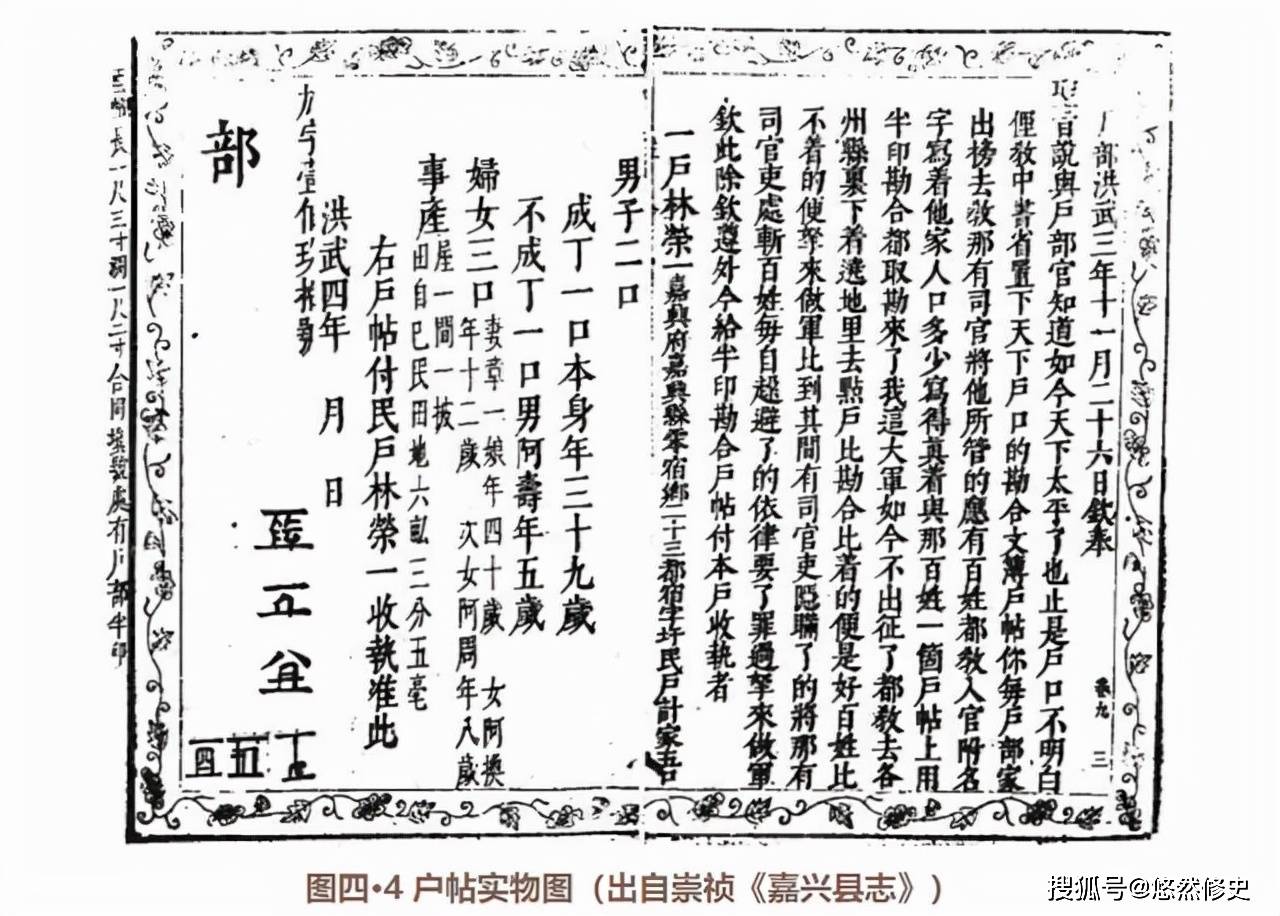 户部洪武三年十一月二十六日欽奉
聖旨說與戶部官知道如今天下太平了也止是戶口不明白
俚教中書省置下天下戶口的勘合文簿戶帖你每戶部家
出榜去教那有司官將他所管的應有百姓都教入官附名
字寫着他家人口多少寫得真着與那百姓一箇戶帖上用
半印勘合都取勘來了我這大軍如今不出征了都教去各
州縣裏下着遶地里去點戶比勘合比着的便是好百姓比
不着的便拏來做軍比到其間有司官吏隱瞞了的將那有
司官吏處斬百姓每自趓避了的依律要了罪過拏來做軍
欽此除欽遵外今給半印勘合戶帖付本戶收執者
一戶林榮一嘉興府嘉興縣零宿鄉二十三都宿字圩民戶計家五口
男子二口
成丁一口本身年三十九歲
不成丁一口男阿壽年五歲
婦女三口
妻章一娘年四十歲 女阿換
年十二歲 次女阿周年八歲
事產
屋一間一披
田自己民田地六畝三分五毫
右戶帖付民戶林榮一收執准此
洪武四年 月 日
部
卷九 三
图四·4 户帖实物图（出自崇祯《嘉兴县志》）
搜狐号@悠然修史